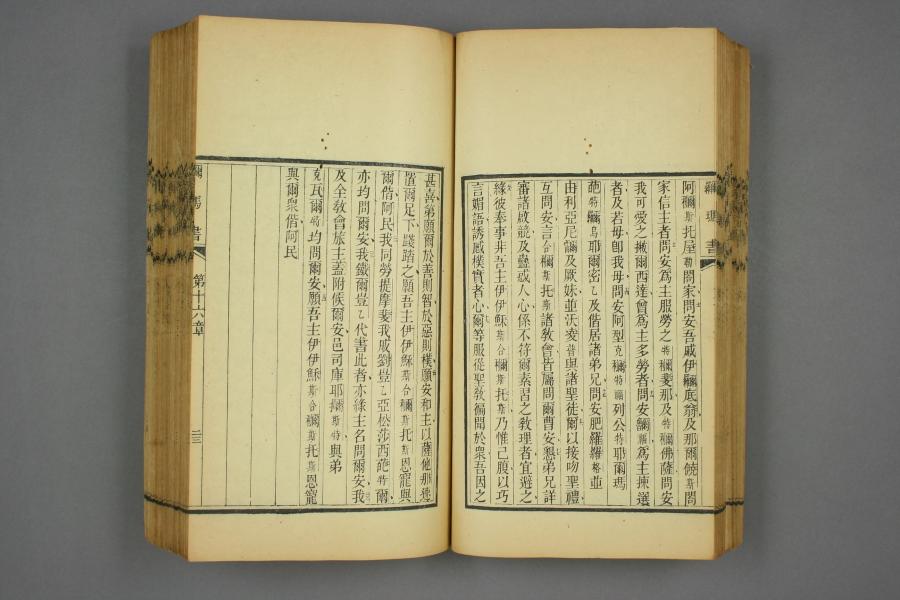 羅瑪書
阿穪斯托屋勒問家問安吾戚伊及那爾饒斯問
家信主者問安爲主服勞之特穪斐那及特穪佛薩問安
我可愛之撇爾西達曾爲主多勞者問安爲主揀選
者及若母卽我母問安阿型克穪特列公特耶爾瑪
葩特烏耶爾密乙及偕居諸弟兄問安肥羅羅格並
由利亞尼及厥妹並沃淩普與諸聖徒爾以接吻聖禮
互問安言合穪斯托斯諸敎會皆屬問爾曹安懇弟兄詳
審諸啟競及蠱惑人心係不符爾素習之敎理者宜避之
緣彼奉事非吾主伊伊穌斯合穪斯托斯乃惟己腹以巧
言媚語誘惑樸實者心爾等服從聖敎徧聞於衆吾因之
甚喜第願爾於善則智於惡則樸願安和主以薩他那速
置爾足下踐踏之願吾主伊伊穌斯合穪斯托斯恩寵與
爾偕阿民我同勞提摩斐我戚劉豈乙亞松莎西葩特爾
亦均問爾安我鐵爾豈乙代書此者亦緣主名問爾安我
及全敎會旅主蓋附候爾安邑司庫耶斯特與弟
克瓦爾均問爾安願吾主伊伊穌斯合穪斯托斯恩寵
與爾衆偕阿民
書
第十六章
二三